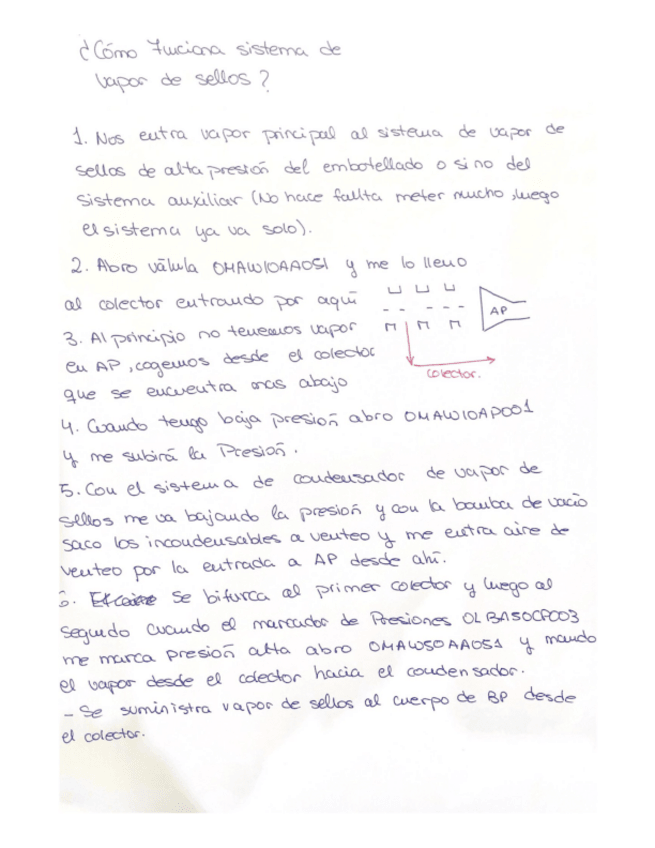 ¿Cómo funciona sistema de
vapor de sellos?
1. Nos entra vapor principal al sistema de vapor de
sellos de alta presión del embotellado o sino del
sistema auxiliar (No hace fallta meter mucho, luego
el sistema ya va solo).
2. Abro válula OMAW10AA051 y me lo lleno
al colector entrando por aquí
3. Al principio no tenemos vapor
en AP, cogemos desde el colector
que se encuentra mas abajo
AP
colector.
4. Cuando tengo baja presión abro OMAW10AP001
y me subirá la Presión.
5. Con el sistema de condensador de vapor de
sellos me va bajando la presión y con la bomba de vacio
saco los incondensables a venteo y me entra aire de
venteo por la entrada a AP desde ahí.
6. Se bifurca al primer colector y luego al
segundo cuando el marcador de Presiones OLBA50CP003
me marca presión alta abro OMAW50AA051 y mando
el vapor desde el colector hacia el condensador.
- Se suministra vapor de sellos al cuerpo de BP desde
el colector.